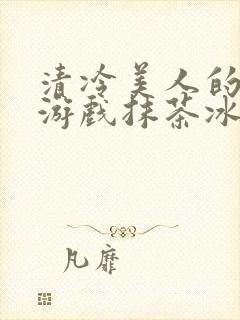 清冷美人的
游戏抹茶冰
凡靡